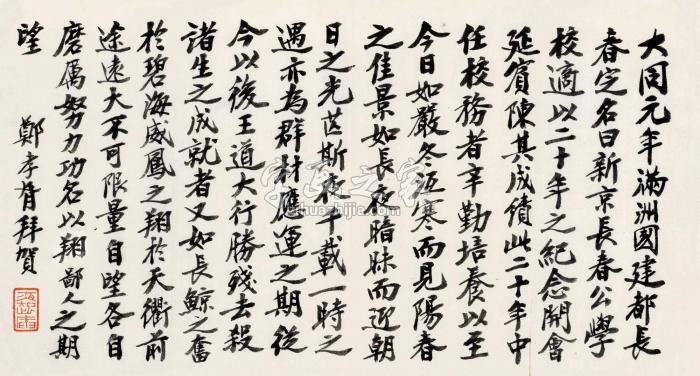 大同元年滿洲國建都長
春定名曰新京長春公學
校適以二十年之紀念開會
延賓陳其成績此二十年中
任校務者辛勤培養以至
今日如嚴冬沍寒而見陽春
之佳景如長夜暗昧而迎朝
日之光芒斯夜千載一時之
遇亦為群材應運之期從
今以後王道大行勝殘去殺
諸生之成就者又如長鯨之奮
於碧海威鳳之翔於天衢前
途遠大不可限量自望各自
磨厲努力功名以翔鄙人之期
望 鄭孝胥拜賀